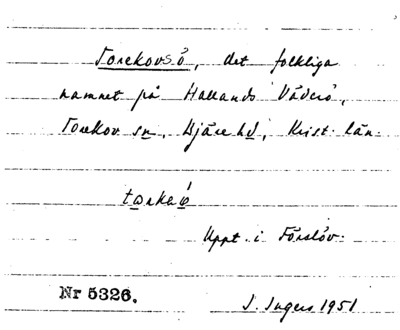 Torekovsö, det folkliga
namnet på Hallands Väderö,
Torekov sn, Bjäre hd, Krist. län.
Uppt. i Förslöv.
Nr 5326.
I. Ingers 1951